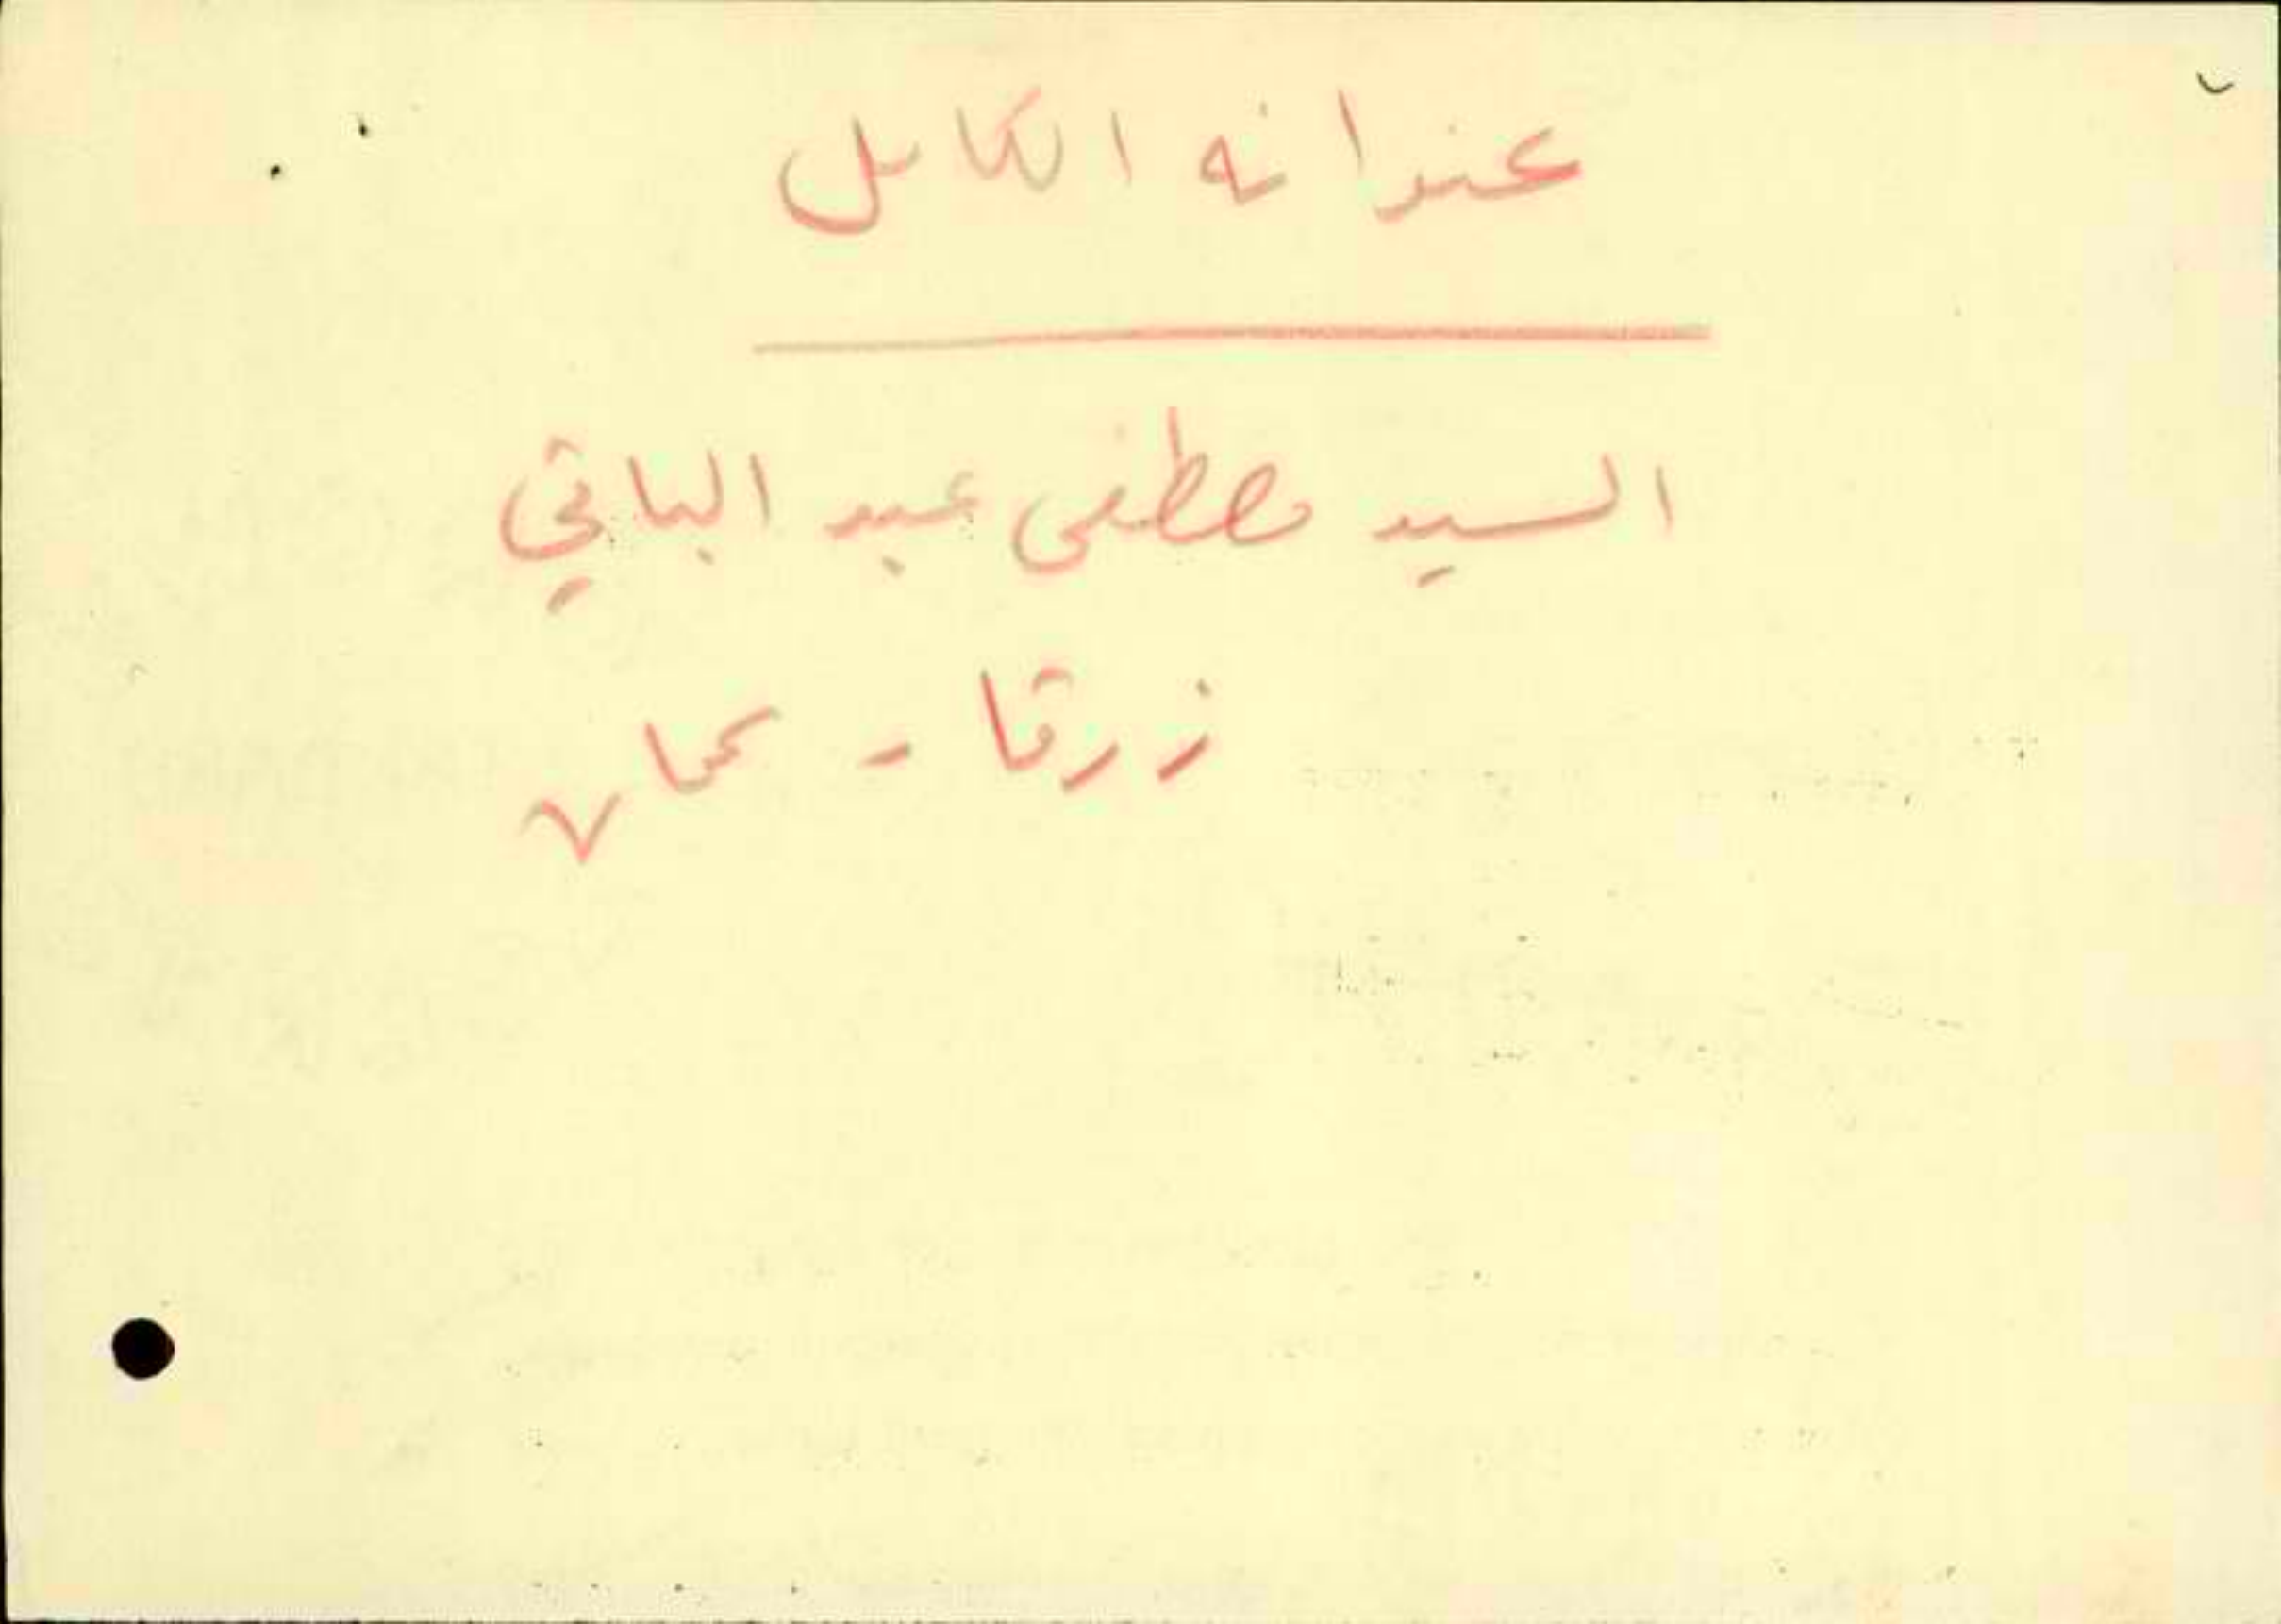 عنوانه الكامل
السيد مصطفى عبد الباقي
زرقا - عمان